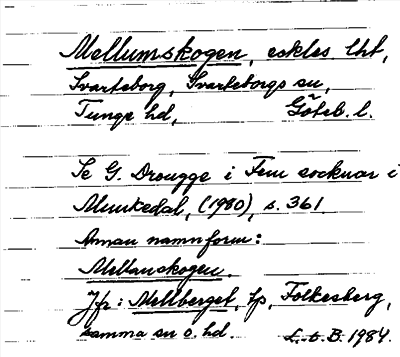 Mellumskogen, eckles. lht,
Svarteborg, Svarteborgs sn,
Tunge hd, Göteb. l.
Se G. Drougge i Fem socknar i
Munkedal, (1980), s. 361.
Annan namnform:
Mellanskogen.
Jfr: Mellberget, lp, Folkesberg,
samma sn o. hd. L. o. B. 1984.